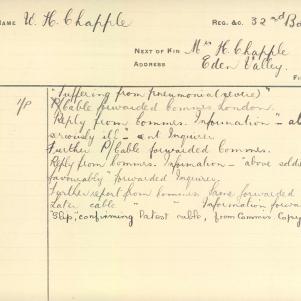 NAME U. H. Chapple REG. &C. 32nd Ba
NEXT OF KIN Mrs H. Chapple
ADDRESS Eden Valley.
"Suffering from pneumonia (severe)"
1/P P/Cable forwarded Commrs London.
Reply from Commrs. Information - "abov
seriously ill - ent Inquirer
Further P/Cable forwarded Commrs.
Reply from Commrs. Information - "above soldi
favourably" forwarded Inquirer.
Further report from Commrs same forwarded
Later cable " " Information forwa
"Slip," confirming latest cable, from Commrs. Copy